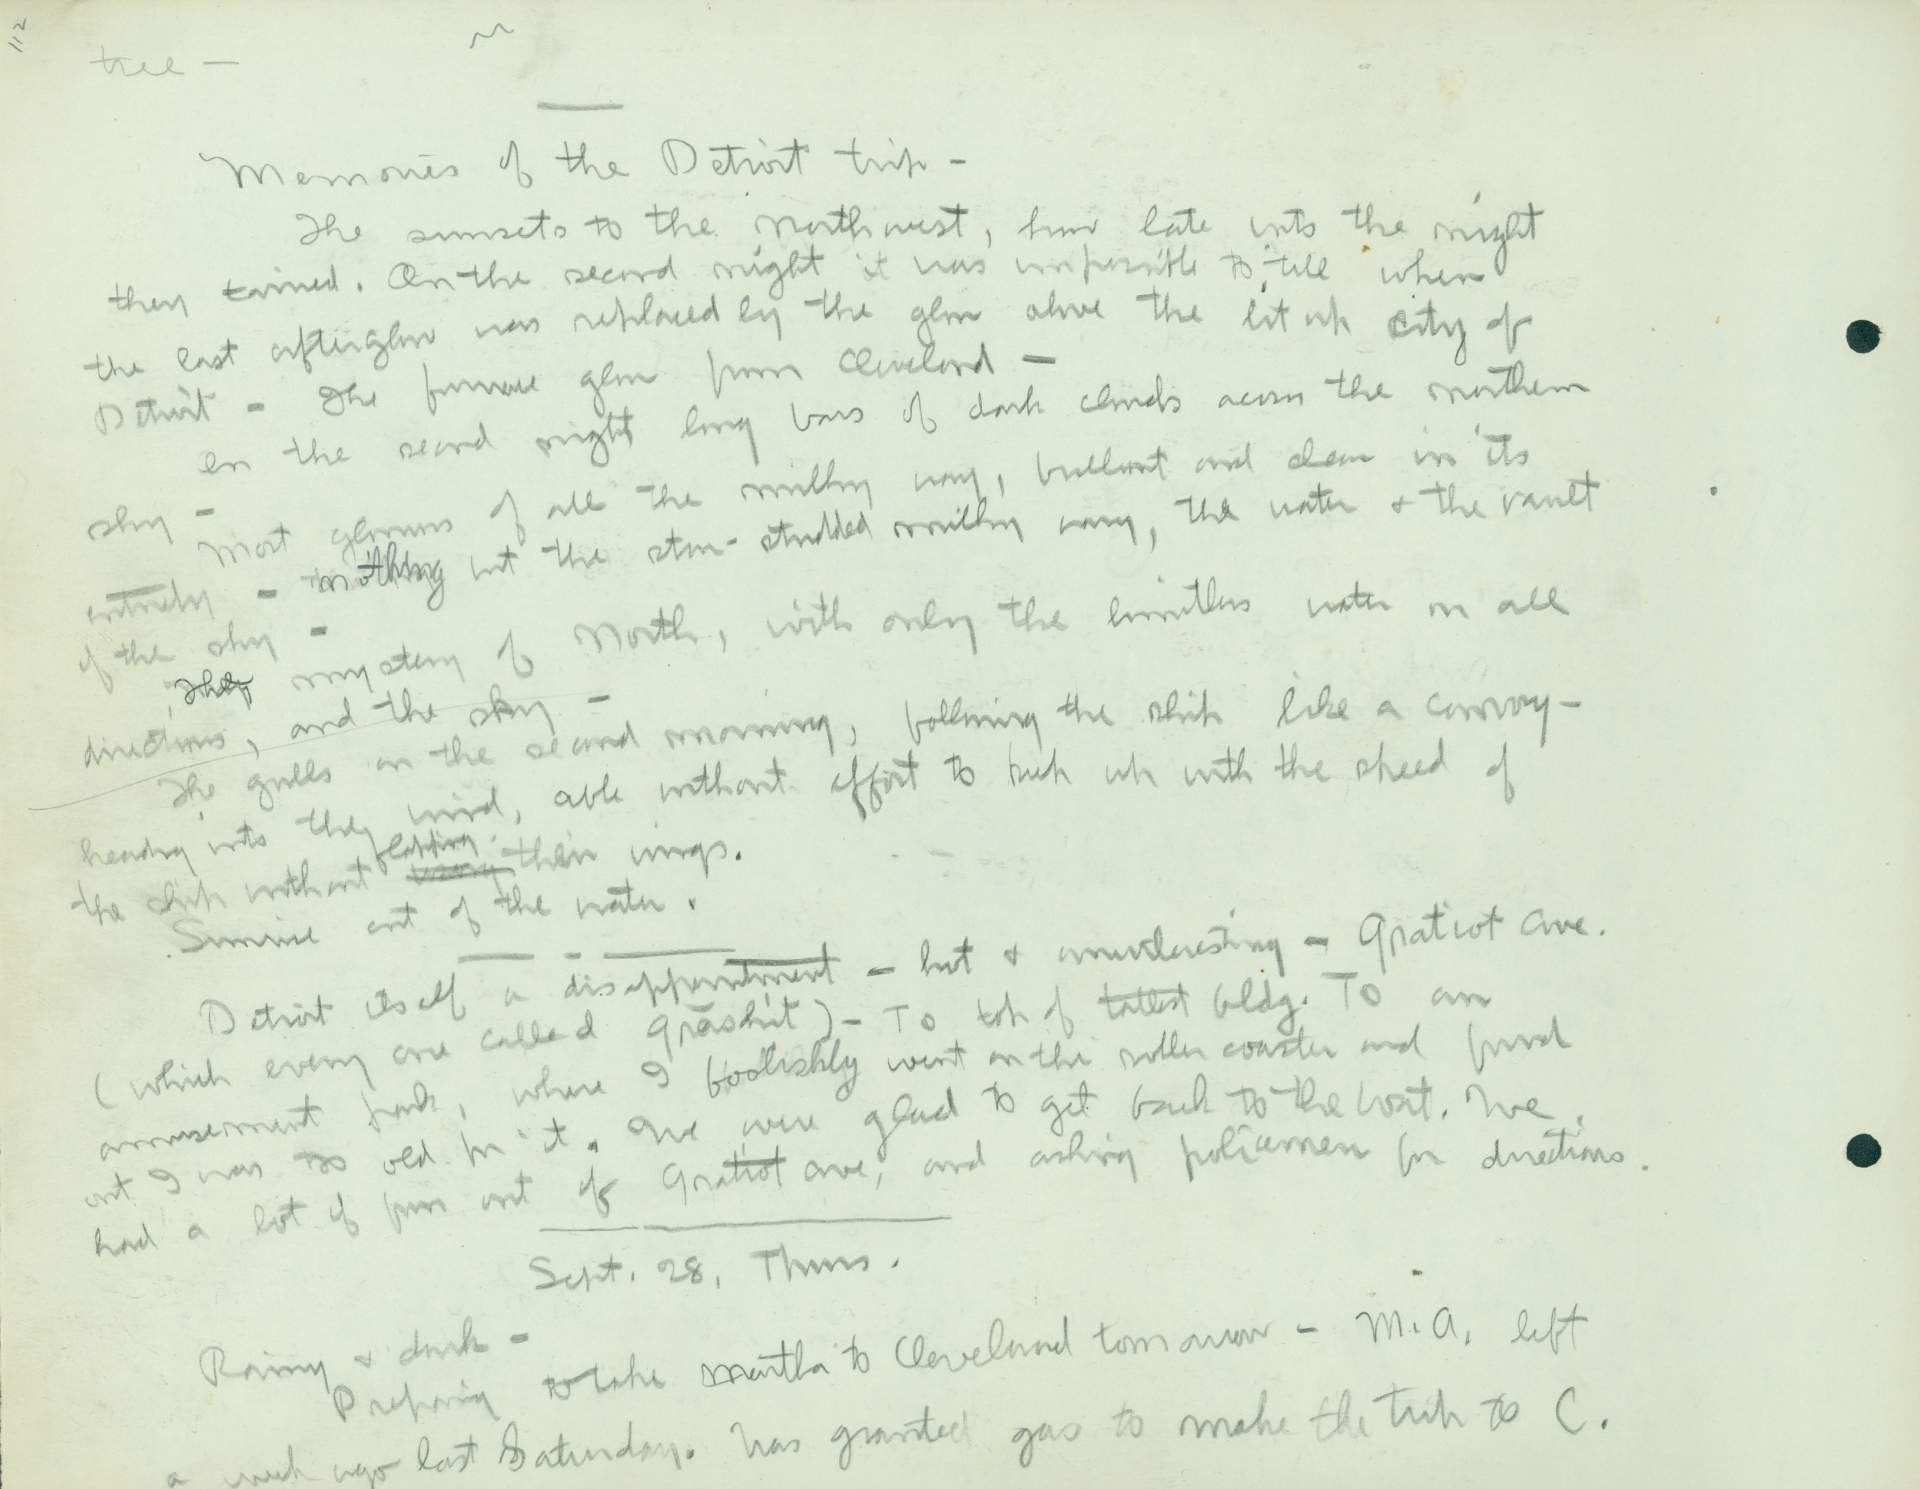 112
tree —
Memories of the Detroit trip —
The sunsets to the Northwest, how late into the night
they . On the second night it was impossible to tell when
the last afterglow was replaced by the glow above the lit up city of
Detroit — The furnace glow from Cleveland —
On the second night long bars of dark clouds across the northern
sky —
Most glorious of all the milky way, brilliant and clear in its
entirety — nothing but the star-studded milky way, the water & the vault
of the sky —
The mystery of North, with only the limitless water in all
directions, and the sky —
The gulls on the second morning, following the ship like a convoy —
heading into the wind, able without effort to keep up with the speed of
the ship without flapping their wings.
Sunrise out of the water.
Detroit itself a disappointment — hot & uninteresting — Gratiot Ave.
(which every one called Grashit) — To top of tallest bldg. To an
amusement park, where I foolishly went on the roller coaster and found
out I was too old for it. We were glad to get back to the boat. We
had a lot of fun out of Gratiot ave, and asking policemen for directions.
Sept. 28, Thurs.
Rainy & dark —
Preparing to take Martha to Cleveland tomorrow — M.A. left
a week ago last Saturday. Was granted gas to make the trip to C.